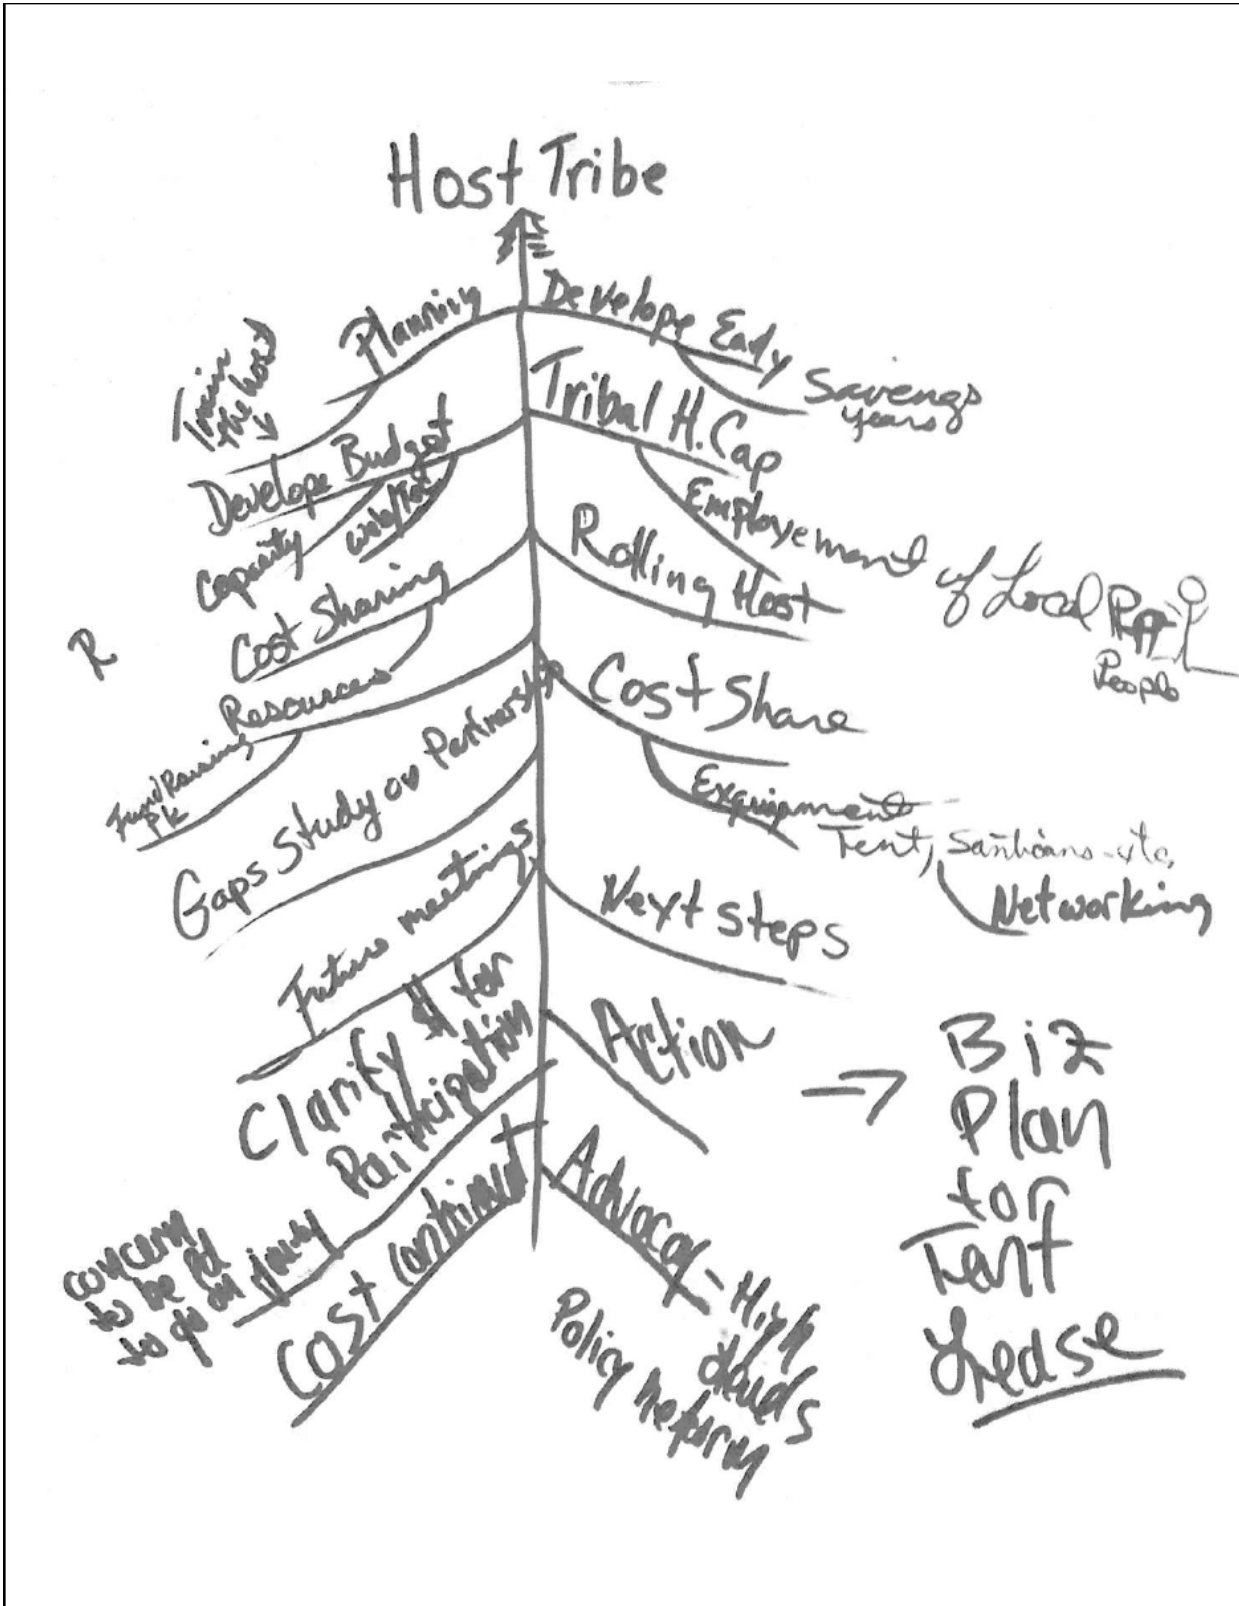 Host Tribe
Planning
Train
the host
Develope Budget
Capacity
Cost Sharing
R
Resources
Fund Raising
Pk
Gaps Study or Partnership
Future meetings
Clarify $ for
Participation
concern
to be pd
to go on
Cost
Develope Early
Savengs
years
Tribal H. Cap
Employement of Local
People
Rolling Host
Cost Share
Exquipment
Tent, etc,
Networking
Next steps
Action
Advocacy - High
Policy Reform
→ Biz
Plan
for
Tent
Lease